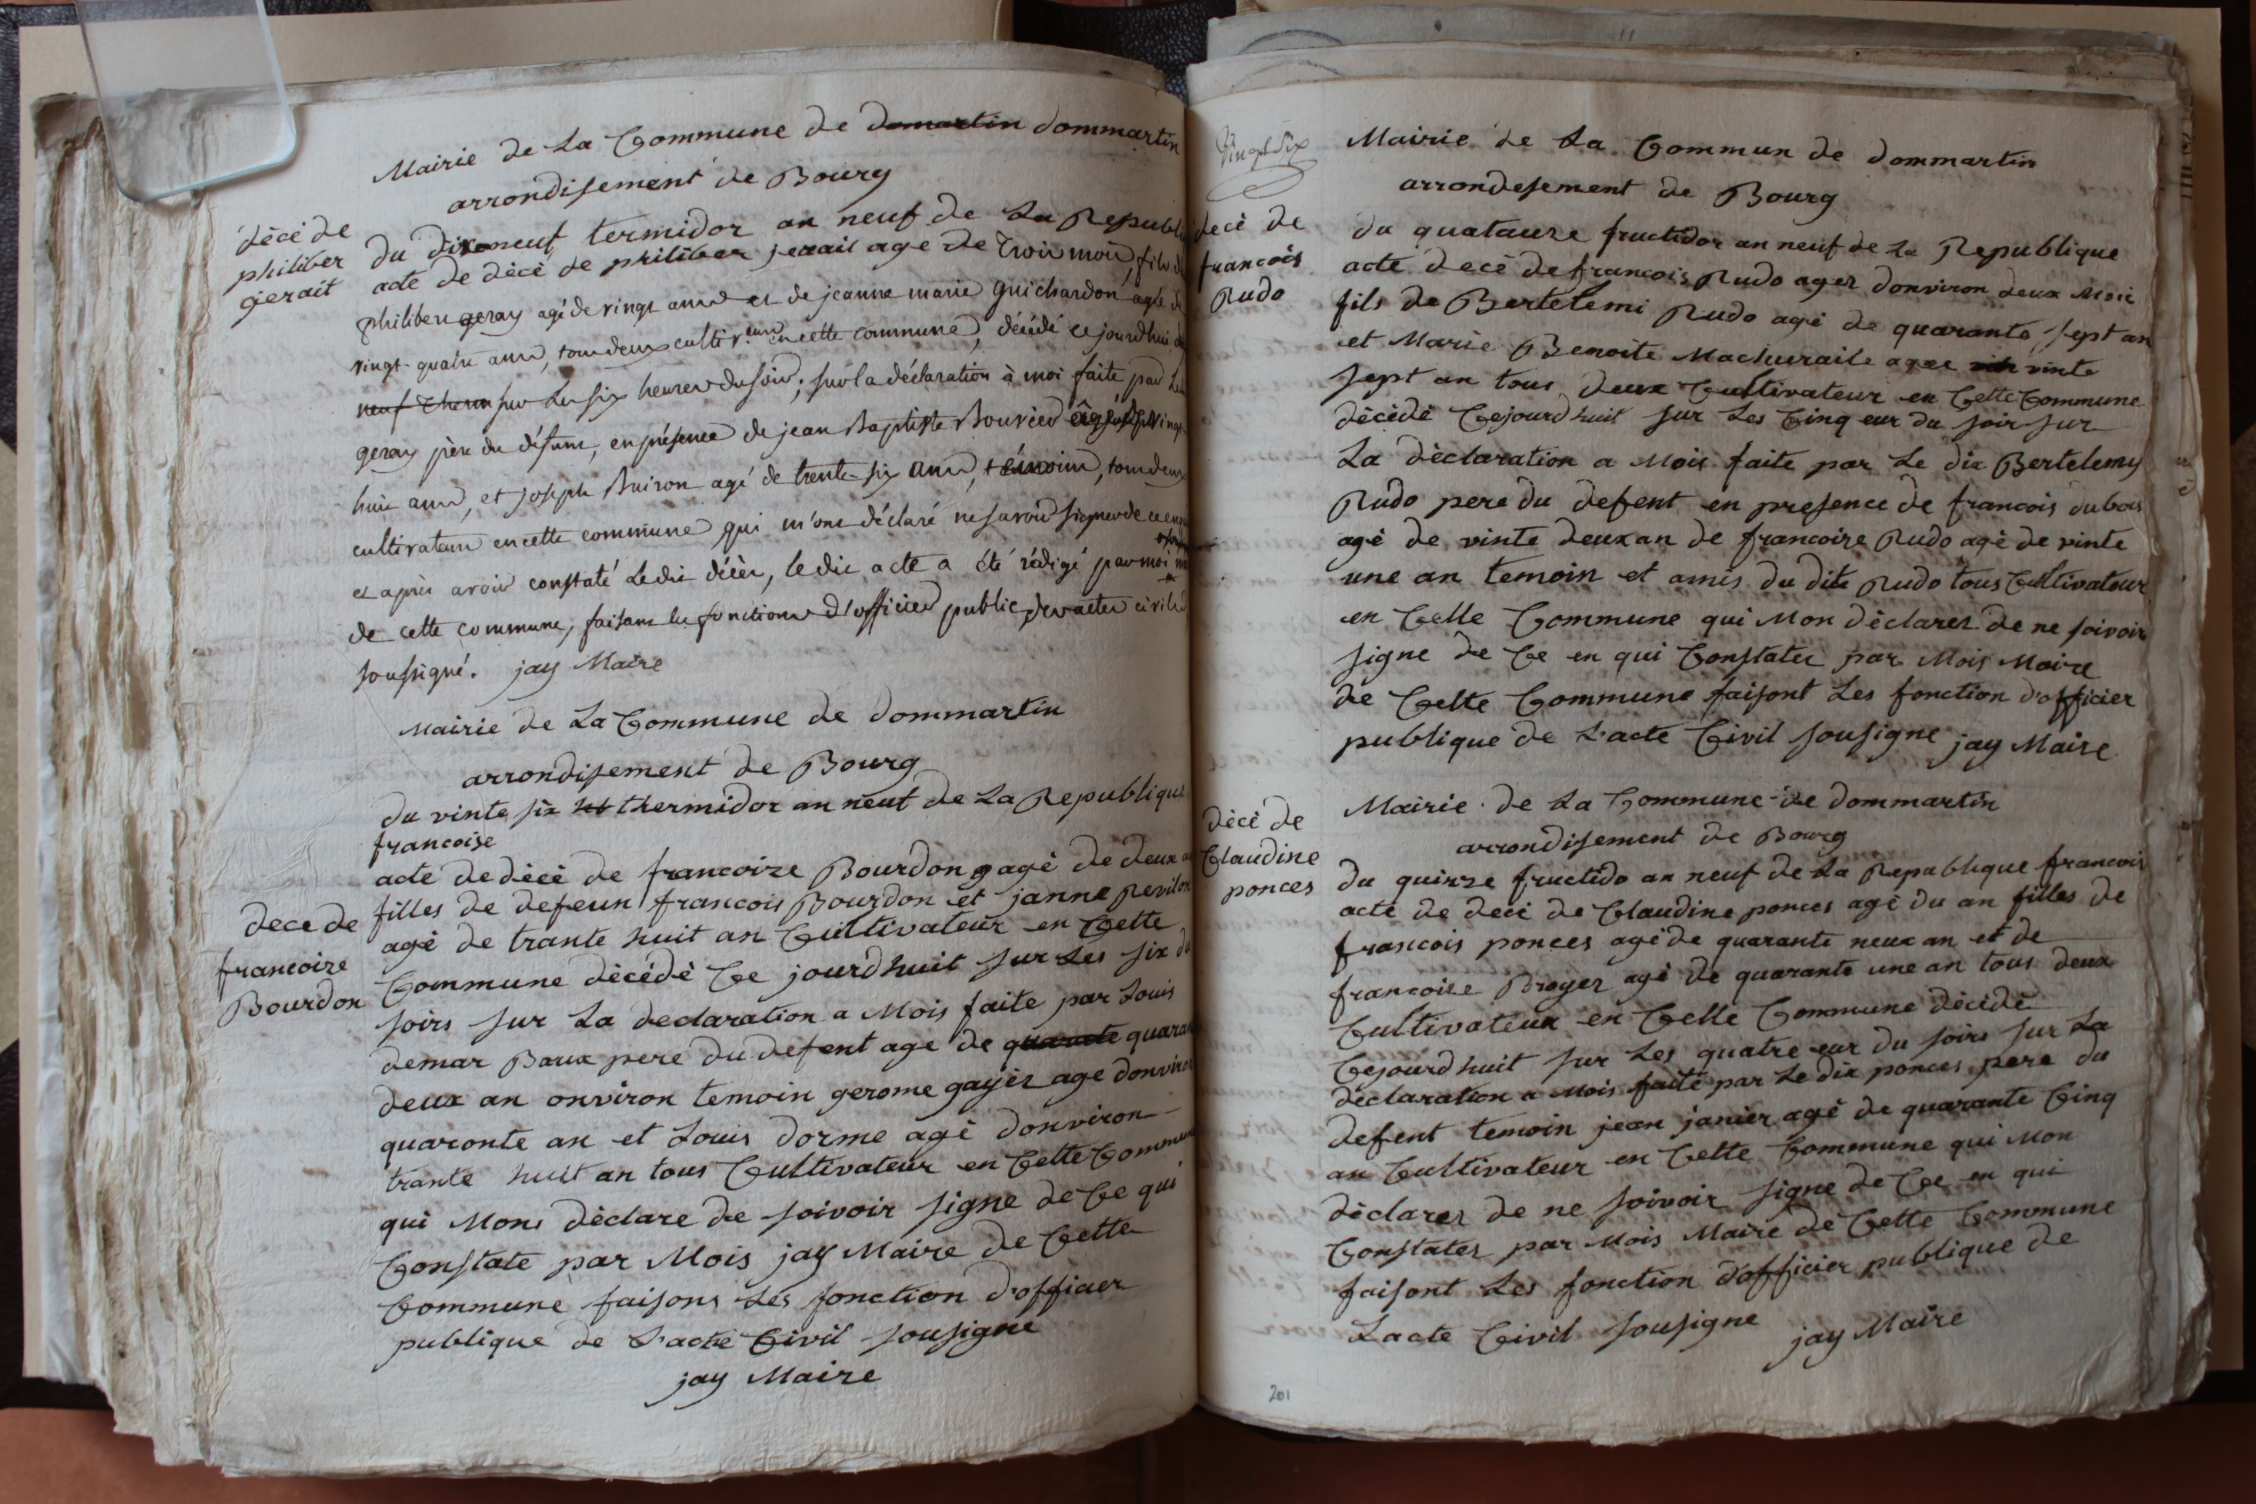 Mairie de La Commune de domartin dommartin
arrondisement de Bourg
dècè de
philiber
gerait
du dixneuf termidor an neuf de La Republi
acte de dècè de philiber jerait age de trois mois, fils de
philiber geray agé de vingt ans et de jeanne marie Guichardon agée de
vingt-quatre ans, tous deux cultiv.eurs en cette commune, décédé ce jourd'hui
neuf therm sur les six heures du soir; sur la déclaration à moi faite par
geray père du défunt, en présence de jean Baptiste Bouvier vingt
huit ans, et joseph Buiron agé de trente-six ans, témoins, tous deux
cultivateurs en cette commune qui m'ont déclaré ne savoir signer de ce
et après avoir constaté Ledit décès, le dit acte a été rédigé par moi
de cette commune, faisant les fonctions d'officier public des actes civils
soussigné. jay Maire
Mairie de La Commune de dommartin
arrondisement de Bourg
du vinte six thermidor an neuf de La Republique
francoise
dece de
francoize
Bourdon
acte de dècè de francoize Bourdon agè de deux
filles de defeun francois Bourdon et janne Revilon
agè de trante huit an Cultivateur en Cette
Commune dècèdè Ce jourdhuit sur Les six du
soirs sur La declaration a Mois faite par Louis
demar Baux pere du defent age de quarate quaran
deux an onviron temoin gerome gayer age donviron
quaronte an et Louis dorme agè donviron
trante huit an tous Cultivateur en Cette Commune
qui Mons dèclare de soivoir signe de Ce qui
Constate par Mois jay Maire de Cette
Commune faisons Les fonction d'officier
publique de L'acte Civil sousigne
jay Maire
Vingt Six
Mairie de La Commun de dommartin
arrondesement de Bourg
decè de
francois
Rudo
du quatauze fructidor an neuf de La Republique
acte decè de francois Rudo agez donviron deux Mois
fils de Bertelemi Rudo agè de quarante sept an
et Marie Benoite Machuraite agee vinte
sept an tous deux Cultivateur en Cette Commune
dècèdè Cejourdhuit sur Les Cinq eur du soir sur
La dèclaration a Mois faite par Le dix Bertelemy
Rudo pere du defent en presence de francois dubois
agè de vinte deux an de francoize Rudo agè de vinte
une an temoin et amis du dite Rudo tous Cultivateur
en Cette Commune qui Mon dèclarez de ne soivoir
signe de Ce en qui Constatez par Mois Maire
de Cette Commune faisont Les fonction d'officier
publique de L'acte Civil sousigne jay Maire
Mairie de La Commune de dommartin
arrondisement de Bourg
dècè de
Claudine
ponces
du quinze fructido an neuf de La Republique francois
acte de decè de Claudine ponces agè du an filles de
francois ponces agè de quarante neux an et de
francoise Broyer agè de quarante une an tous deux
Cultivateux en Cette Commune dècèdè
Cejourdhuit sur Les quatre eur du soirs sur La
dèclaration a Mois faite par Le dix ponces pere du
defent temoin jean janier agè de quarante Cinq
an Cultivateur en Cette Commune qui Mon
dèclarez de ne soivoir signe de Ce en qui
Constatez par Mois Maire de Cette Commune
faisont Les fonction d'officier publique de
Lacte Civil sousigne jay Maire
201